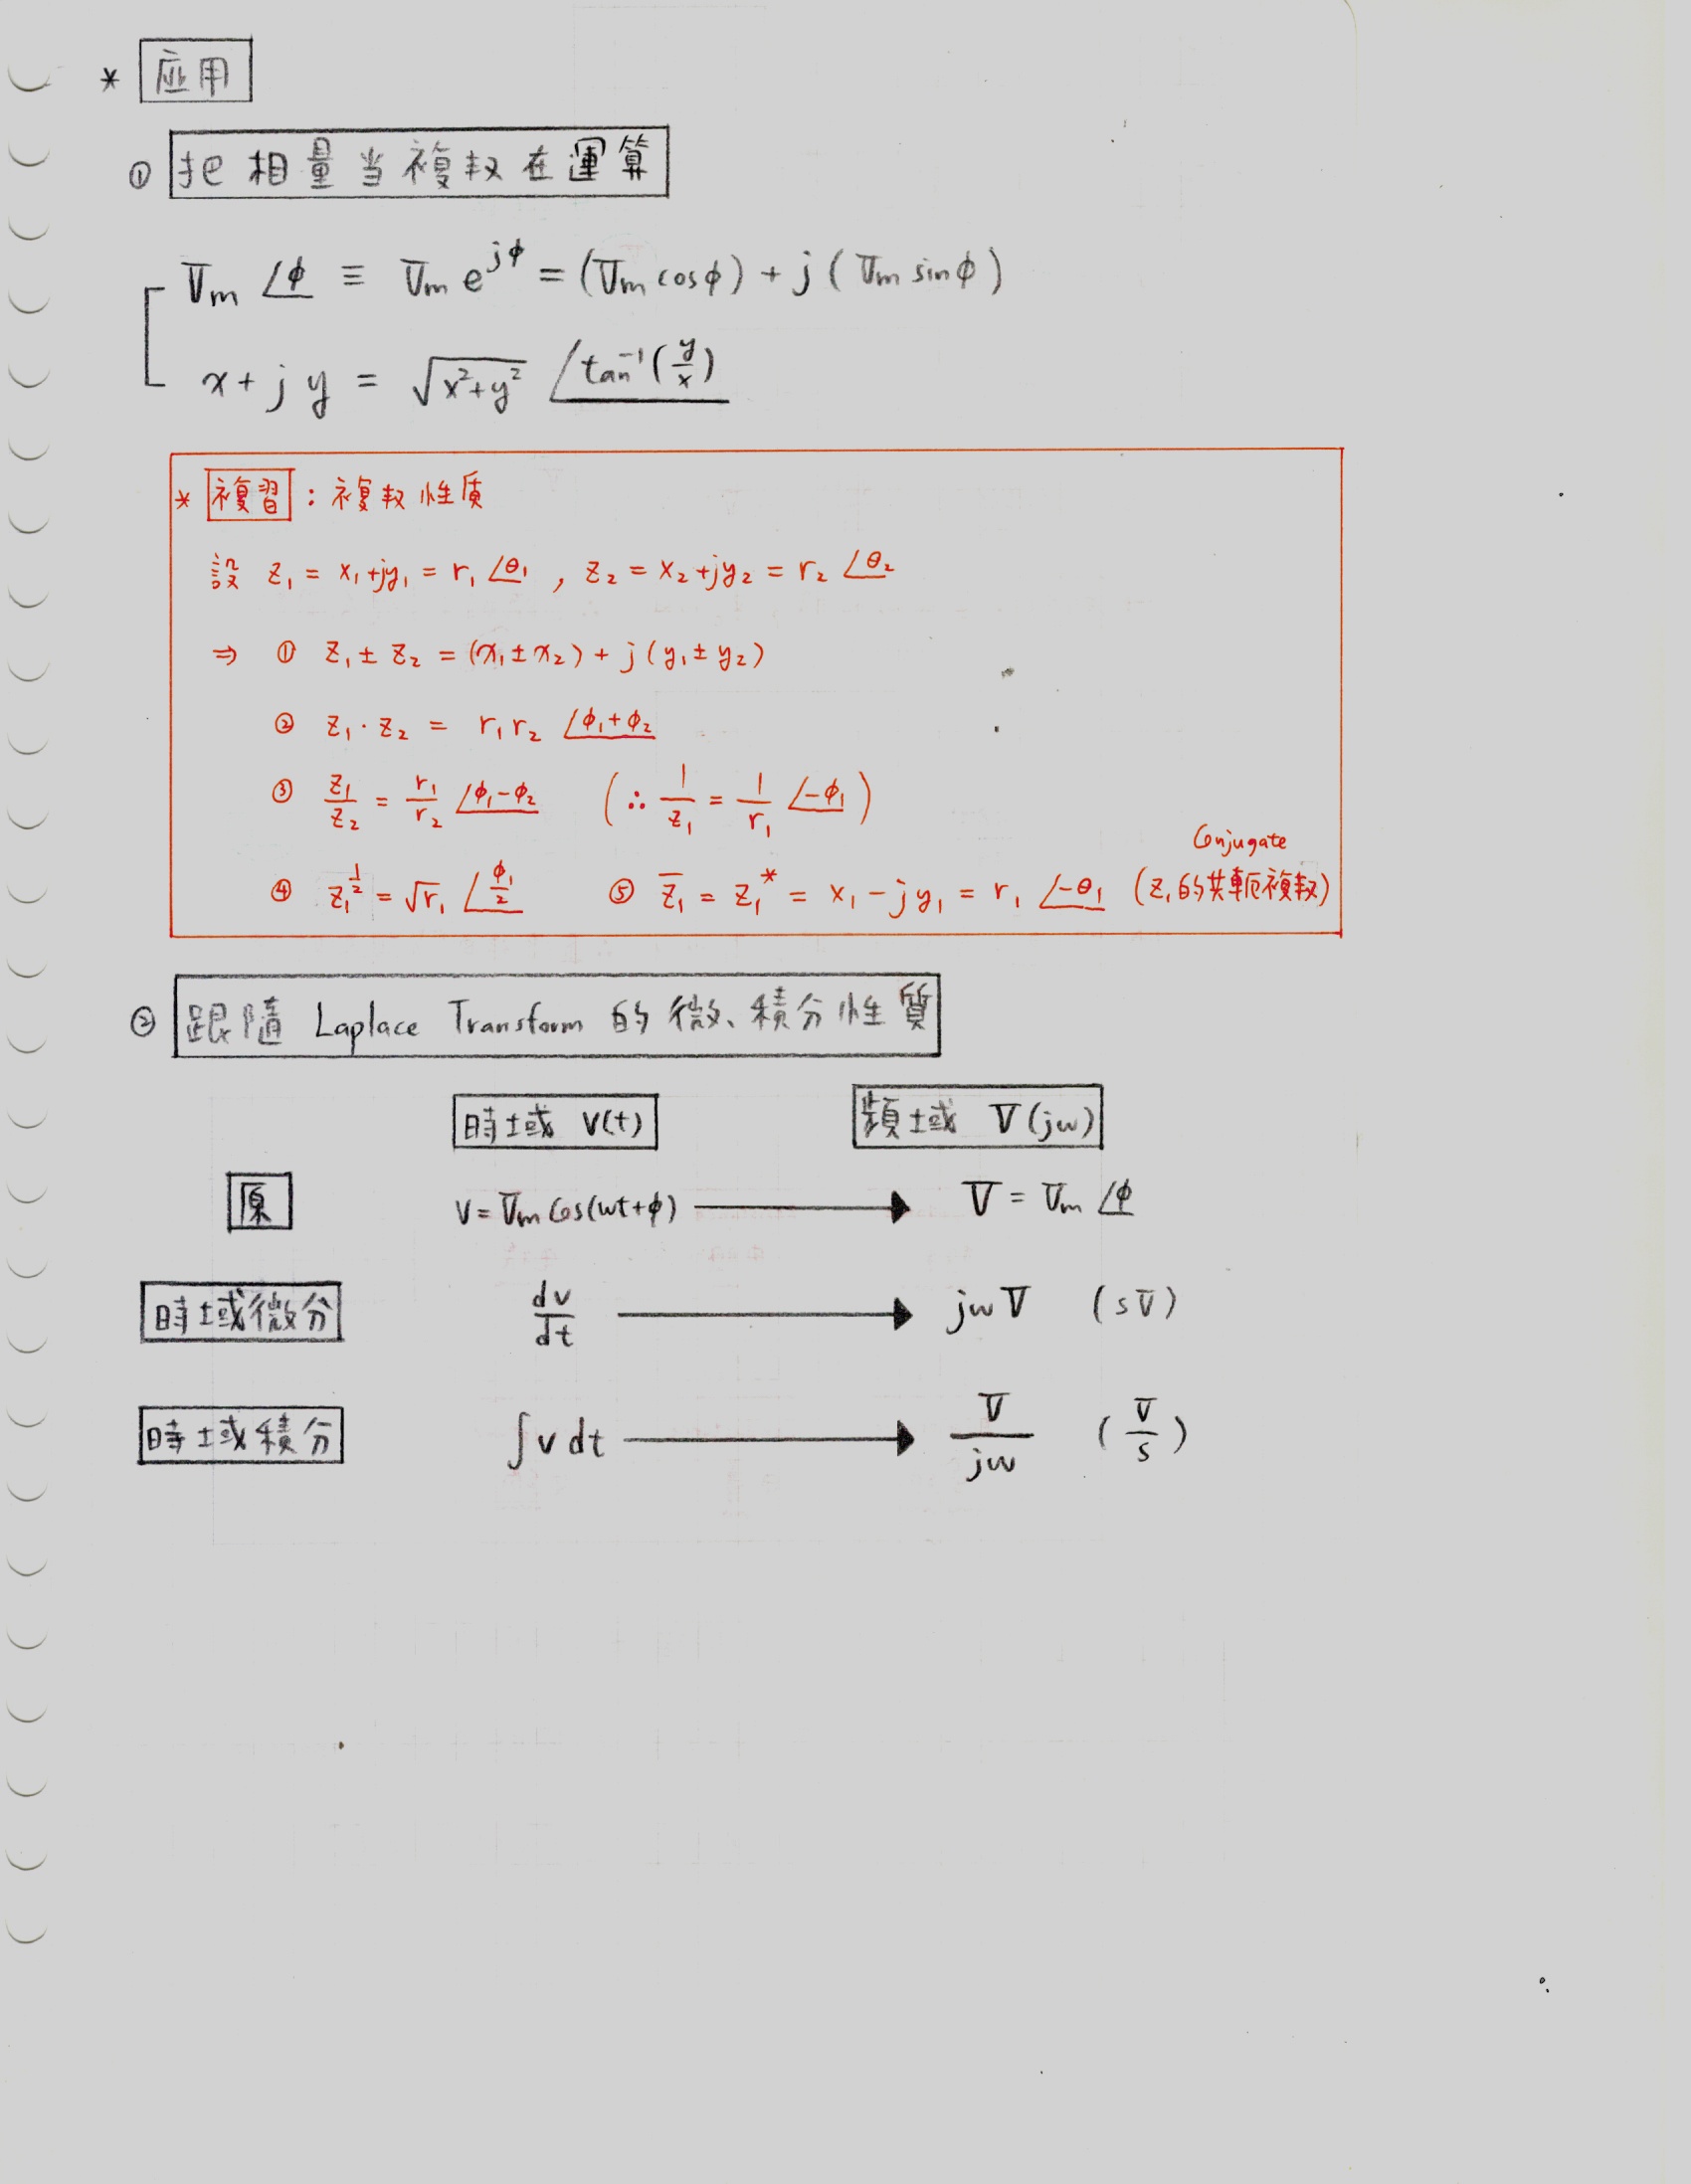 * 应用
① 把相量当複数在運算
Vm ∠φ ≡ Vm e^{jφ} = (Vm cosφ) + j (Vm sinφ)
x + j y = √(x²+y²) ∠tan⁻¹(y/x)
* 複習 : 複数性质
設 z₁ = x₁+jy₁ = r₁ ∠θ₁ , z₂ = x₂+jy₂ = r₂ ∠θ₂
⇒ ① z₁ ± z₂ = (x₁ ± x₂) + j (y₁ ± y₂)
② z₁ · z₂ = r₁ r₂ ∠φ₁+φ₂
③ z₁/z₂ = r₁/r₂ ∠φ₁-φ₂ (∴ 1/z₁ = 1/r₁ ∠-φ₁)
Conjugate
④ z₁^{1/2} = √r₁ ∠φ₁/2 ⑤ z̅₁ = z₁* = x₁ - j y₁ = r₁ ∠-θ₁ (z₁的共軛複数)
② 跟隨 Laplace Transform 的微、積分性質
時域 v(t) 頻域 V(jω)
原 v = Vm Cos(ωt+φ) → V = Vm ∠φ
時域微分 dv/dt → jωV (sV)
時域積分 ∫v dt → V/jω (V/s)